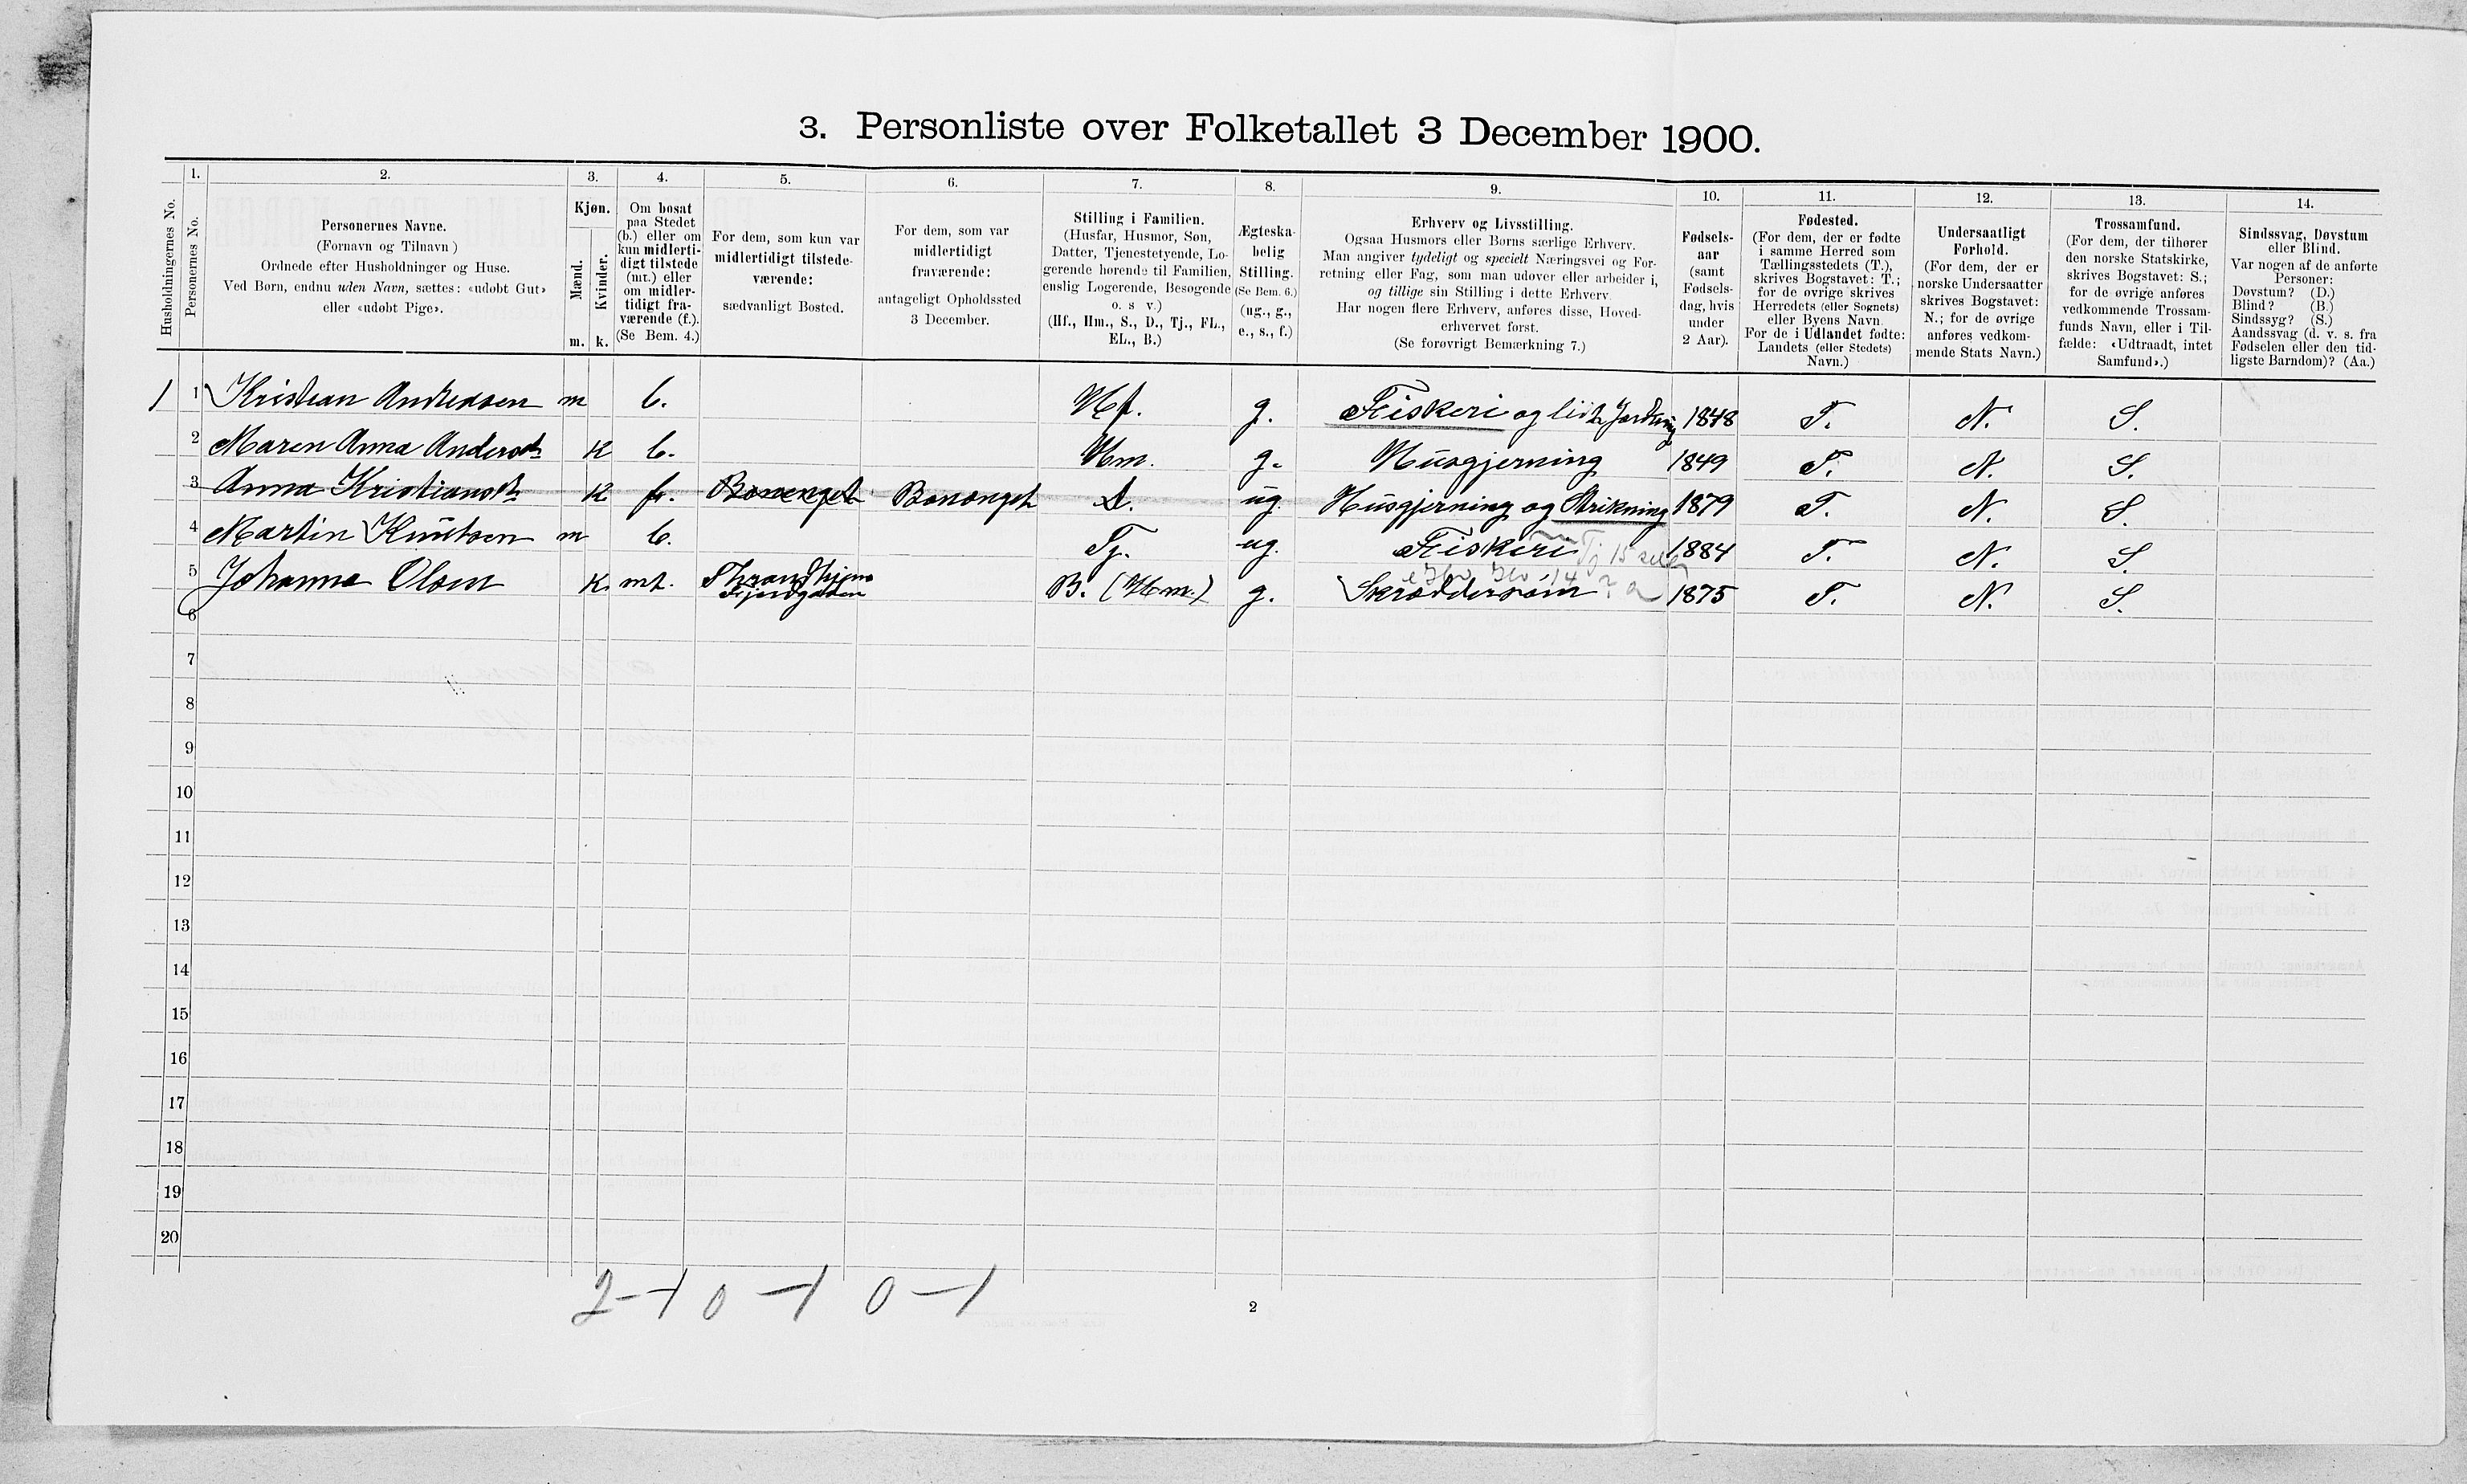 3. Personliste over Folketallet 3 December 1900.
Husholdningernes No.
1.
Personernes No.
2.
Personernes Navne.
(Fornavn og Tilnavn)
Ordnede efter Husholdninger og Huse.
Ved Børn, endnu uden Navn, sættes: «udøbt Gut»
eller «udøbt Pige».
3.
Kjøn.
Mænd.
Kvinder.
m.
k.
4.
Om bosat
paa Stedet
(b.) eller om
kun midlerti-
digt tilstede
(mt.) eller
om midler-
tidigt fra-
værende (f.).
(Se Bem. 4.)
5.
For dem, som kun var
midlertidigt tilstede-
værende:
sædvanligt Bosted.
6.
For dem, som var
midlertidigt
fraværende:
antageligt Opholdssted
3 December.
7.
Stilling i Familien.
(Husfar, Husmor, Søn,
Datter, Tjenestetyende, Lo-
gerende hørende til Familien,
enslig Logerende, Besøgende
o. s v.)
(Hf., Hm., S., D., Tj., FL.,
EL., B.)
8.
Ægteska-
belig
Stilling.
(Se Bem. 6.)
(ug., g.,
e., s., f.)
9.
Erhverv og Livsstilling.
Ogsaa Husmors eller Børns særlige Erhverv.
Man angiver tydeligt og specielt Næringsvei og For-
retning eller Fag, som man udøver eller arbeider i,
og tillige sin Stilling i dette Erhverv.
Har nogen flere Erhverv, anføres disse, Hoved-
erhvervet først.
(Se forøvrigt Bemærkning 7.)
10.
Fødsels-
aar
(samt
Fødsels-
dag, hvis
under
2 Aar).
11.
Fødested.
(For dem, der er fødte
i samme Herred som
Tællingsstedets (T.),
skrives Bogstavet: T.;
for de øvrige skrives
Herredets (eller Sognets)
eller Byens Navn.
For de i Udlandet fødte:
Landets (eller Stedets)
Navn.)
12.
Undersaatligt
Forhold.
(For dem, der er
norske Undersaatter
skrives Bogstavet:
N.; for de øvrige
anføres vedkom-
mende Stats Navn.)
13.
Trossamfund.
(For dem, der tilhører
den norske Statskirke,
skrives Bogstavet: S.;
for de øvrige anføres
vedkommende Trossam-
funds Navn, eller i Til-
fælde: «Udtraadt, intet
Samfund».)
14.
Sindssvag, Døvstum
eller Blind.
Var nogen af de anførte
Personer:
Døvstum? (D.)
Blind? (B.)
Sindssyg? (S.)
Aandssvag (d. v. s. fra
Fødselen eller den tid-
ligste Barndom)? (Aa.)
1 1 Kristian Andersen m b. Hf. g. Fiskeri og lidt Jordbrug 1848 T. N. S.
2 Maren Anna Andersdt k b. Hm. g. Husgjerning 1849 T. N. S.
3 Anna Kristiansdt k f. Bonenget Bonenget D. ug. Husgjerning og Strikning 1879 T. N. S.
4 Martin Knutsen m b. Tj. ug. Fiskeri 1884 T. N. S.
5 Johanna Olsen k mt. Thrandhjem Fjordgaden B. (Hm.) g. Skræddersøm 1875 T. N. S.
6
7
8
9
10
11
12
13
14
15
16
17
18
19
20
2-1 0-1 0-1
2